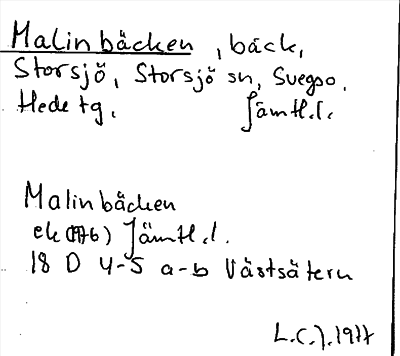 Malinbäcken, bäck,
Storsjö, Storsjö sn, Svegso.
Hede tg. Jämtl.l.
Malinbäcken
ek (1976) Jämtl.l.
18 D 4-5 a-b Västsätern
L.C.J. 1977